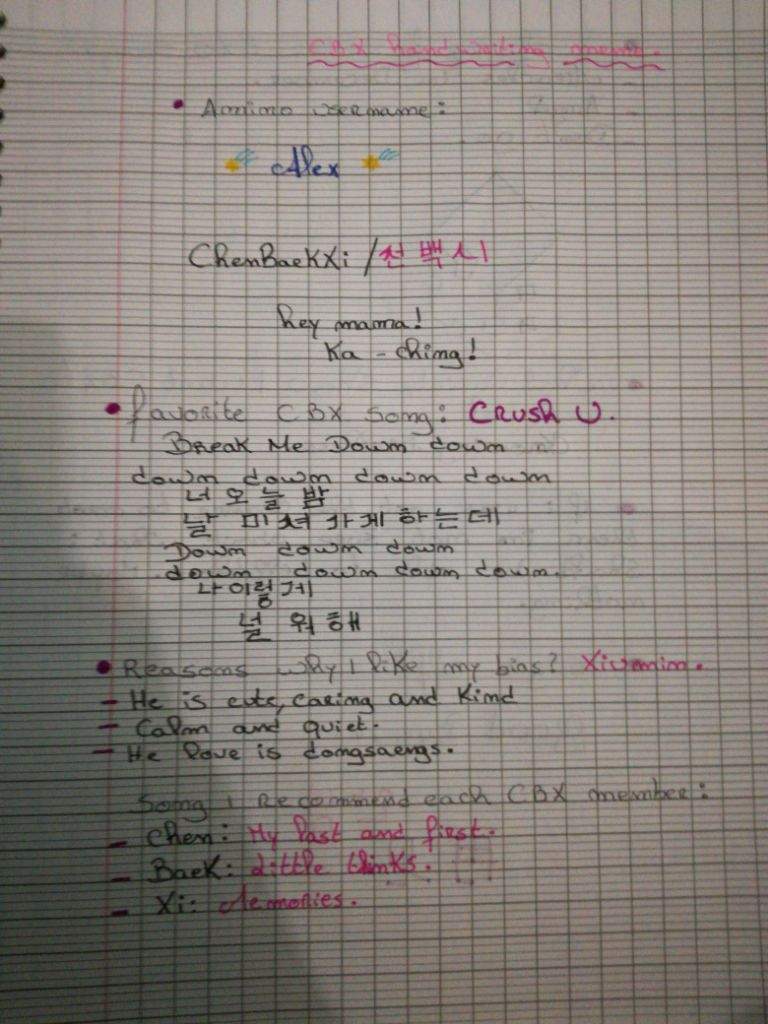 CBX handwriting event.
• Amino username:
Alex
ChenBaekXi / 천백시
hey mama!
Ka - ching!
• favorite CBX song: CRUSH U.
Break Me Down down
down down down down down
너 오늘 밤
날 미쳐 가게 하는데
Down down down
down down down down down.
나 이렇게
널 원해
• Reasons why I like my bias? Xiumin.
- He is cute, caring and Kind
- Calm and quiet.
- He love is dongsaengs.
Song I Recommend each CBX member:
- Chen: My last and first.
- BaeK: Little thinks.
- Xi: Memories.